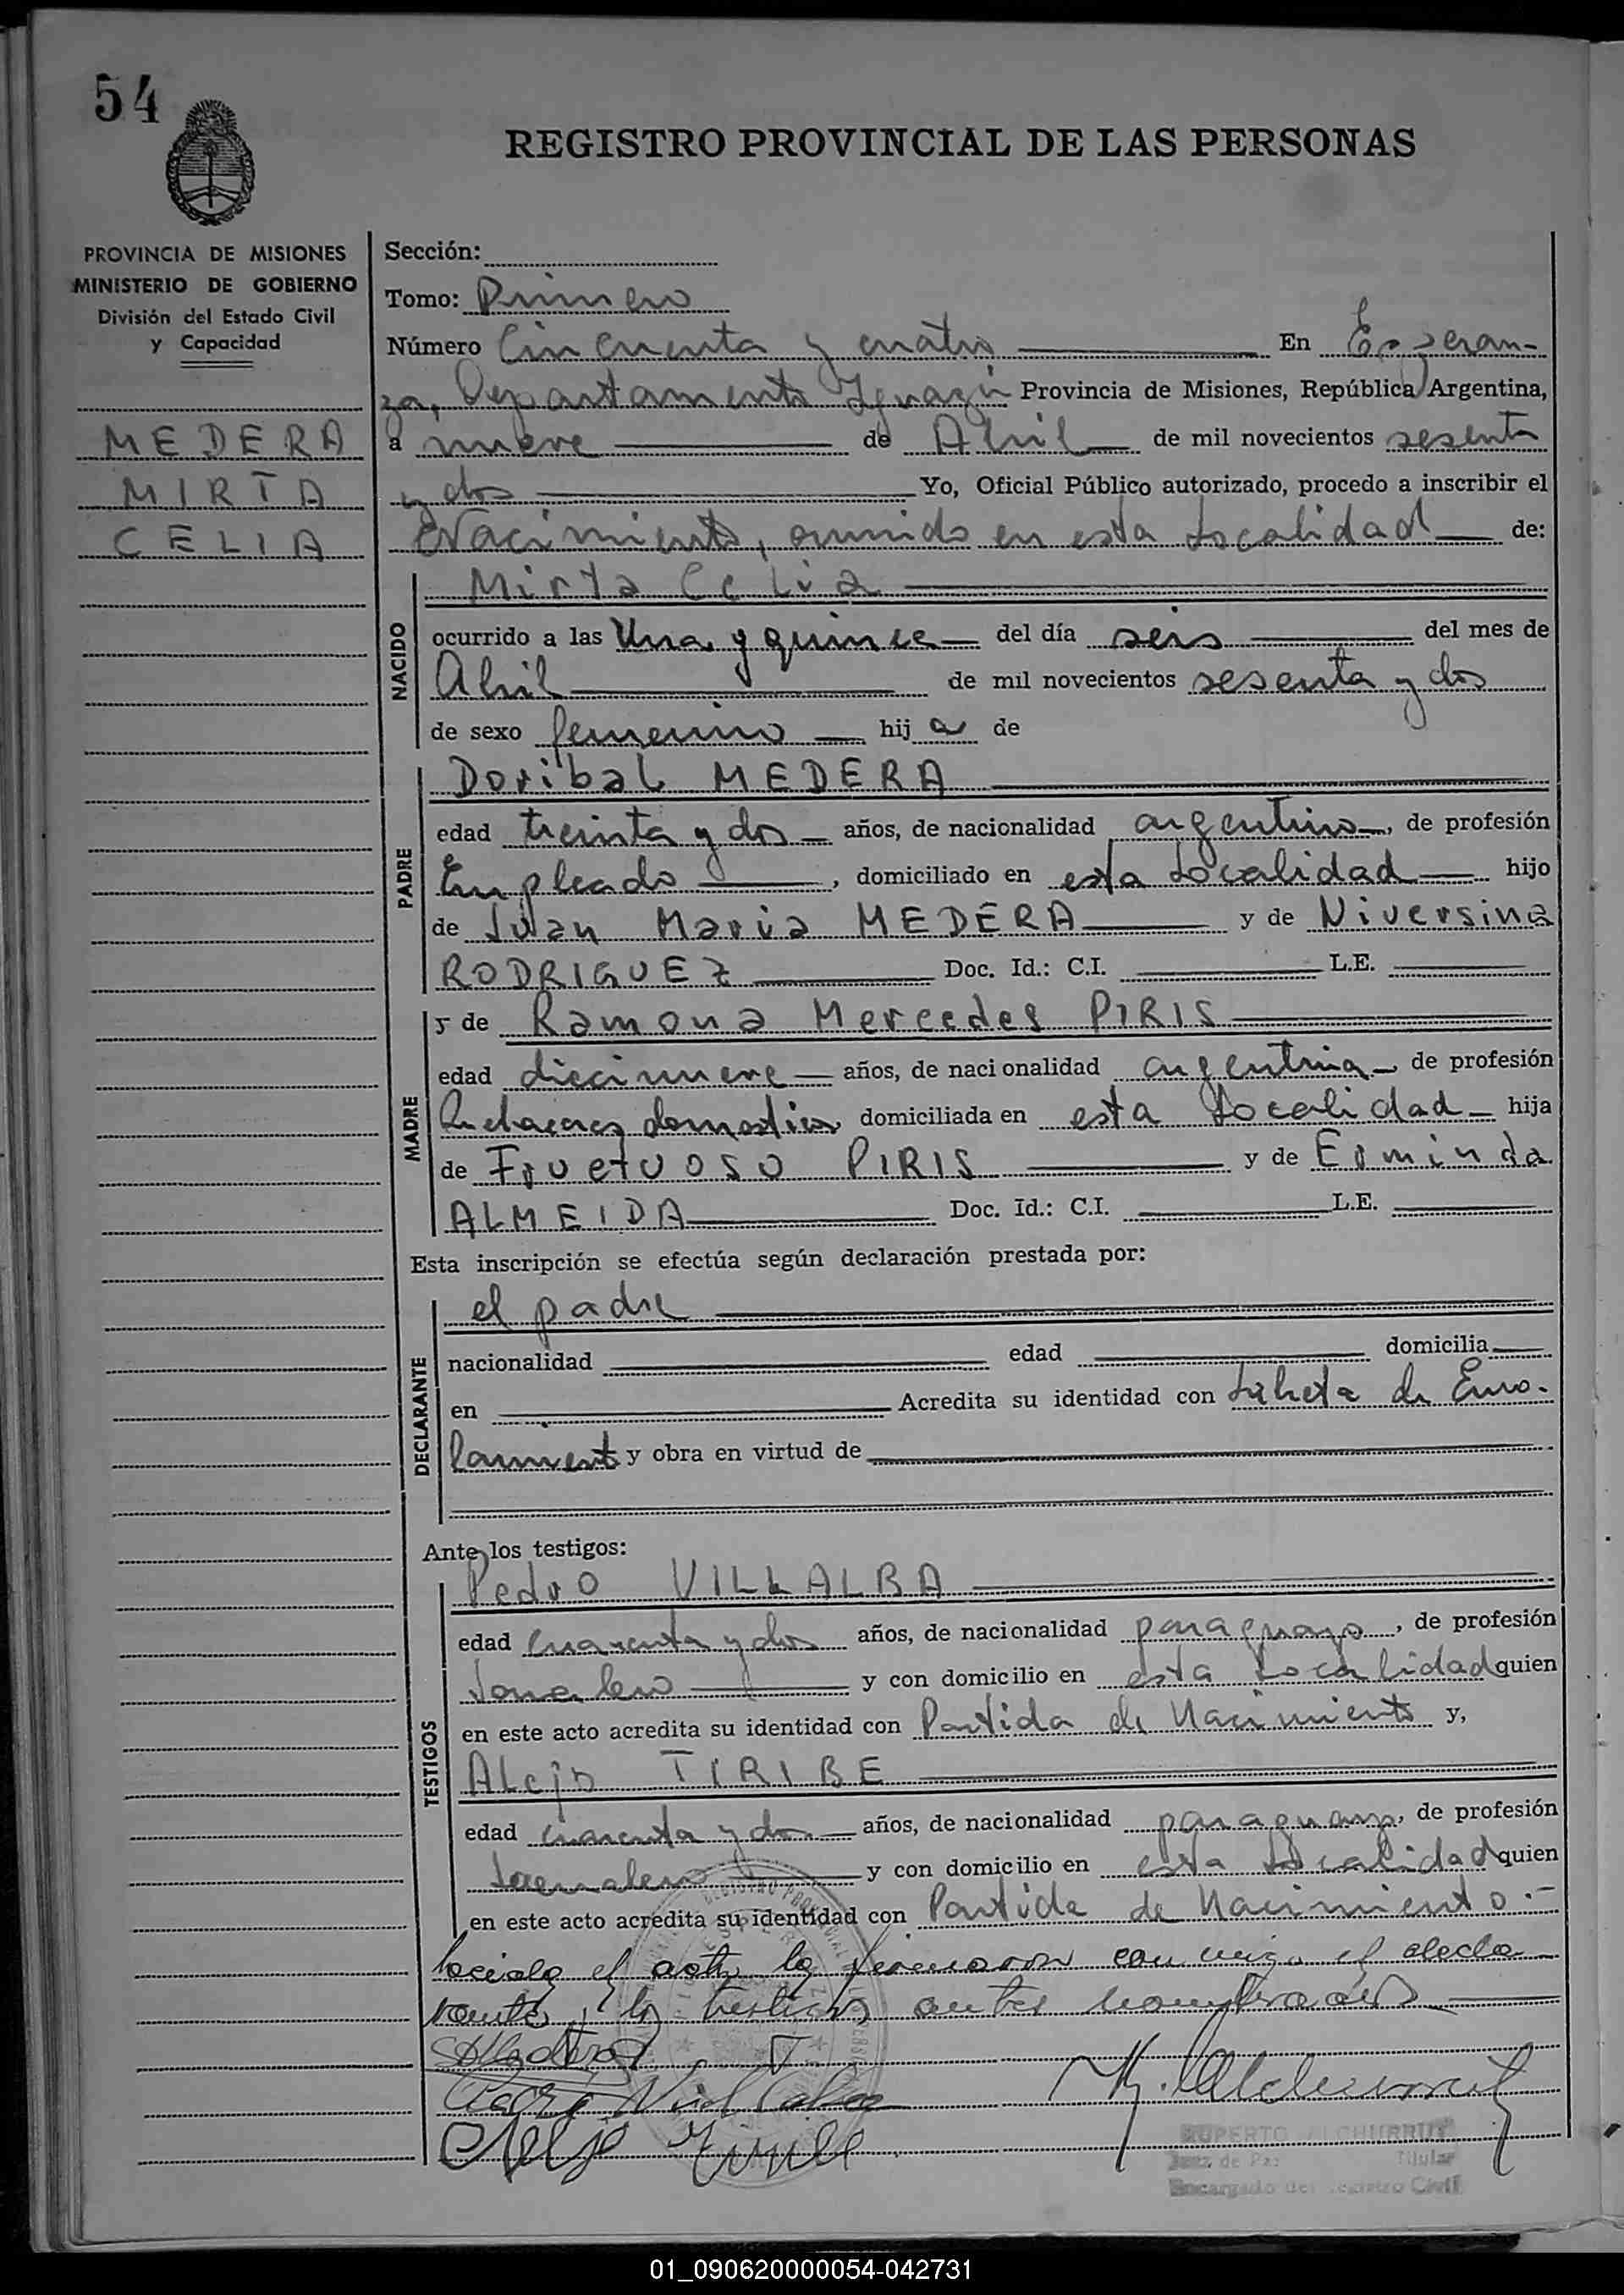 54
REGISTRO PROVINCIAL DE LAS PERSONAS
PROVINCIA DE MISIONES
MINISTERIO DE GOBIERNO
División del Estado Civil
y Capacidad
MEDERA
MIRTA
CELIA
Sección:
Tomo: Primero
Número Cincuenta y cuatro En Esperan-
za, Departamento Iguazú Provincia de Misiones, República Argentina,
a nueve de Abril de mil novecientos sesenta
y dos Yo, Oficial Público autorizado, procedo a inscribir el
Nacimiento, ocurrido en esta Localidad de:
NACIDO
Mirta Celia
ocurrido a las Una y quince del día seis del mes de
Abril de mil novecientos sesenta y dos
de sexo femenino hij a de
PADRE
Doribal MEDERA
edad treinta y dos años, de nacionalidad argentino, de profesión
Empleado, domiciliado en esta Localidad hijo
de Juan Maria MEDERA y de Niversina
RODRIGUEZ Doc. Id.: C.I. L.E.
MADRE
y de Ramona Mercedes PIRIS
edad diecinueve años, de nacionalidad argentina de profesión
Quehaceres domesticos domiciliada en esta Localidad hija
de Fructuoso PIRIS y de Erminda
ALMEIDA Doc. Id.: C.I. L.E.
Esta inscripción se efectúa según declaración prestada por:
DECLARANTE
el padre
nacionalidad edad domicilia
en Acredita su identidad con Libreta de Enro-
lamiento y obra en virtud de
Ante los testigos:
TESTIGOS
Pedro VILLALBA
edad cuarenta y dos años, de nacionalidad paraguayo, de profesión
Jornalero y con domicilio en esta Localidad quien
en este acto acredita su identidad con Partida de Nacimiento y,
Alejo TIRIBE
edad cuarenta y dos años, de nacionalidad paraguayo, de profesión
Jornalero y con domicilio en esta Localidad quien
en este acto acredita su identidad con Partida de Nacimiento.-
el acta la firmaron conmigo el decla
rante y los testigos antes nombrados
Pedro Villalba
Alejo
RUPERTO ALCHURRUT
Juez de Paz Titular
Encargado del Registro Civil
01_090620000054-042731